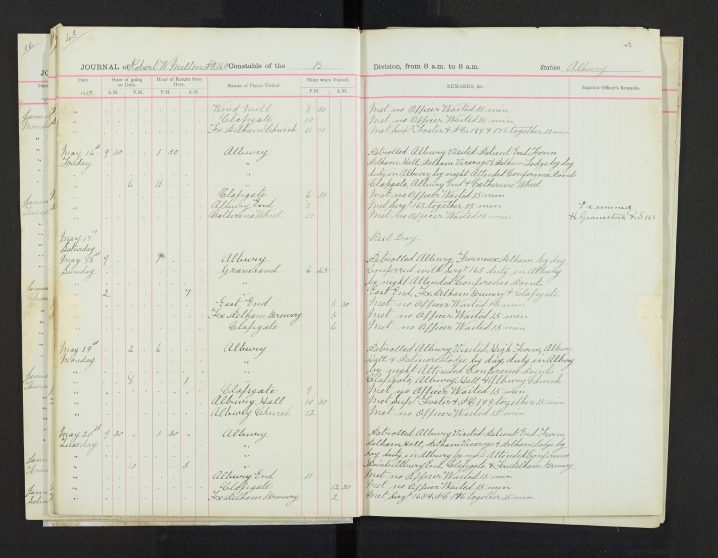 43
JOURNAL of Robert W Milton PC 160 Constable of the B Division, from 8 a.m. to 8 a.m. Station Albury
43
Date
Hour of going on Duty.
Hour of Return from Duty.
Names of Places Visited.
Hour when Visited.
REMARKS, &c.
Superior Officer's Remarks.
A.M. P.M. P.M. A.M. P.M. A.M.
Wind Mill 8 30 Met no Officer Waited 15 min
Clapgate 10 Met no Officer Waited 15 min
Fx Pelham Church 11 30 Met Supt Foster & PC 189 & 146 together 15 min
May 16th 9 30 1 30 Albury Patrolled Albury Visited Patient End Farm
Friday " Pelham Hall, Pelham Vicarage & Pelham Lodge by day
" duty in Albury by night Attended Conference Points
" 6 11 " Clapgate, Albury End & Catherine Wheel
" Clapgate 6 30 Met no Officer Waited 15 min
" Albury End 8 Met Sergt 163 together 15 min Examined
" Catherine Wheel 10 Met no Officer Waited 15 min H. S 163
May 17th Rest Day
Saturday
May 18th 9 Albury Patrolled Albury, Furneux Pelham by day
Sunday Gravesend 6 45 Conferred with Sergt 163 duty in Albury
" by night Attended Conference Points
" 2 7 East End, Fx Pelham Brewery & Clapgate
" East End 3 30 Met no Officer Waited 15 min
" Fx Pelham Brewery 5 Met no Officer Waited 15 min
" Clapgate 6 Met no Officer Waited 15 min
May 19th 2 6 Albury Patrolled Albury Visited High Farm, Albury
Monday " Hall & Lodge by day, duty in Albury
" by night Attended Conference Points
" 8 1 Clapgate, Albury Hall & Albury Church
" Clapgate 9 Met no Officer Waited 15 min
" Albury Hall 10 30 Met Supt Foster & PC 149 together 15 min
" Albury Church 12 Met no Officer Waited 15 min
May 20th 9 30 1 30 Albury Patrolled Albury Visited Patient End Farm
Tuesday " Pelham Hall, Pelham Vicarage & Pelham Lodge by
" day duty in Albury by night Attended Conference
" 10 3 " Points Albury End, Clapgate & Fx Pelham Brewery
" Albury End 11 Met no Officer Waited 15 min
" Clapgate 12 30 Met no Officer Waited 15 min
" Fx Pelham Brewery 2 Met Sergt 163 & PC 146 together 15 min